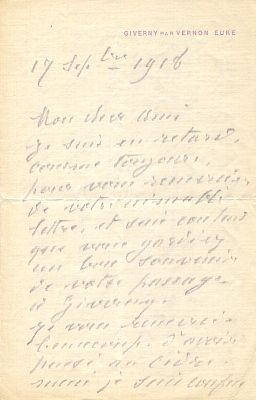 GIVERNY PAR VERNON EURE
17 Sepbre 1918
Mon cher ami
je suis en retard,
comme toujours,
pour vous remercier
de votre aimable
lettre, et suis content
que vous gardiez
un bon souvenir
de votre passage
à Giverny.
Je vous remercie
beaucoup d'avoir
pensé au
mais je suis confus